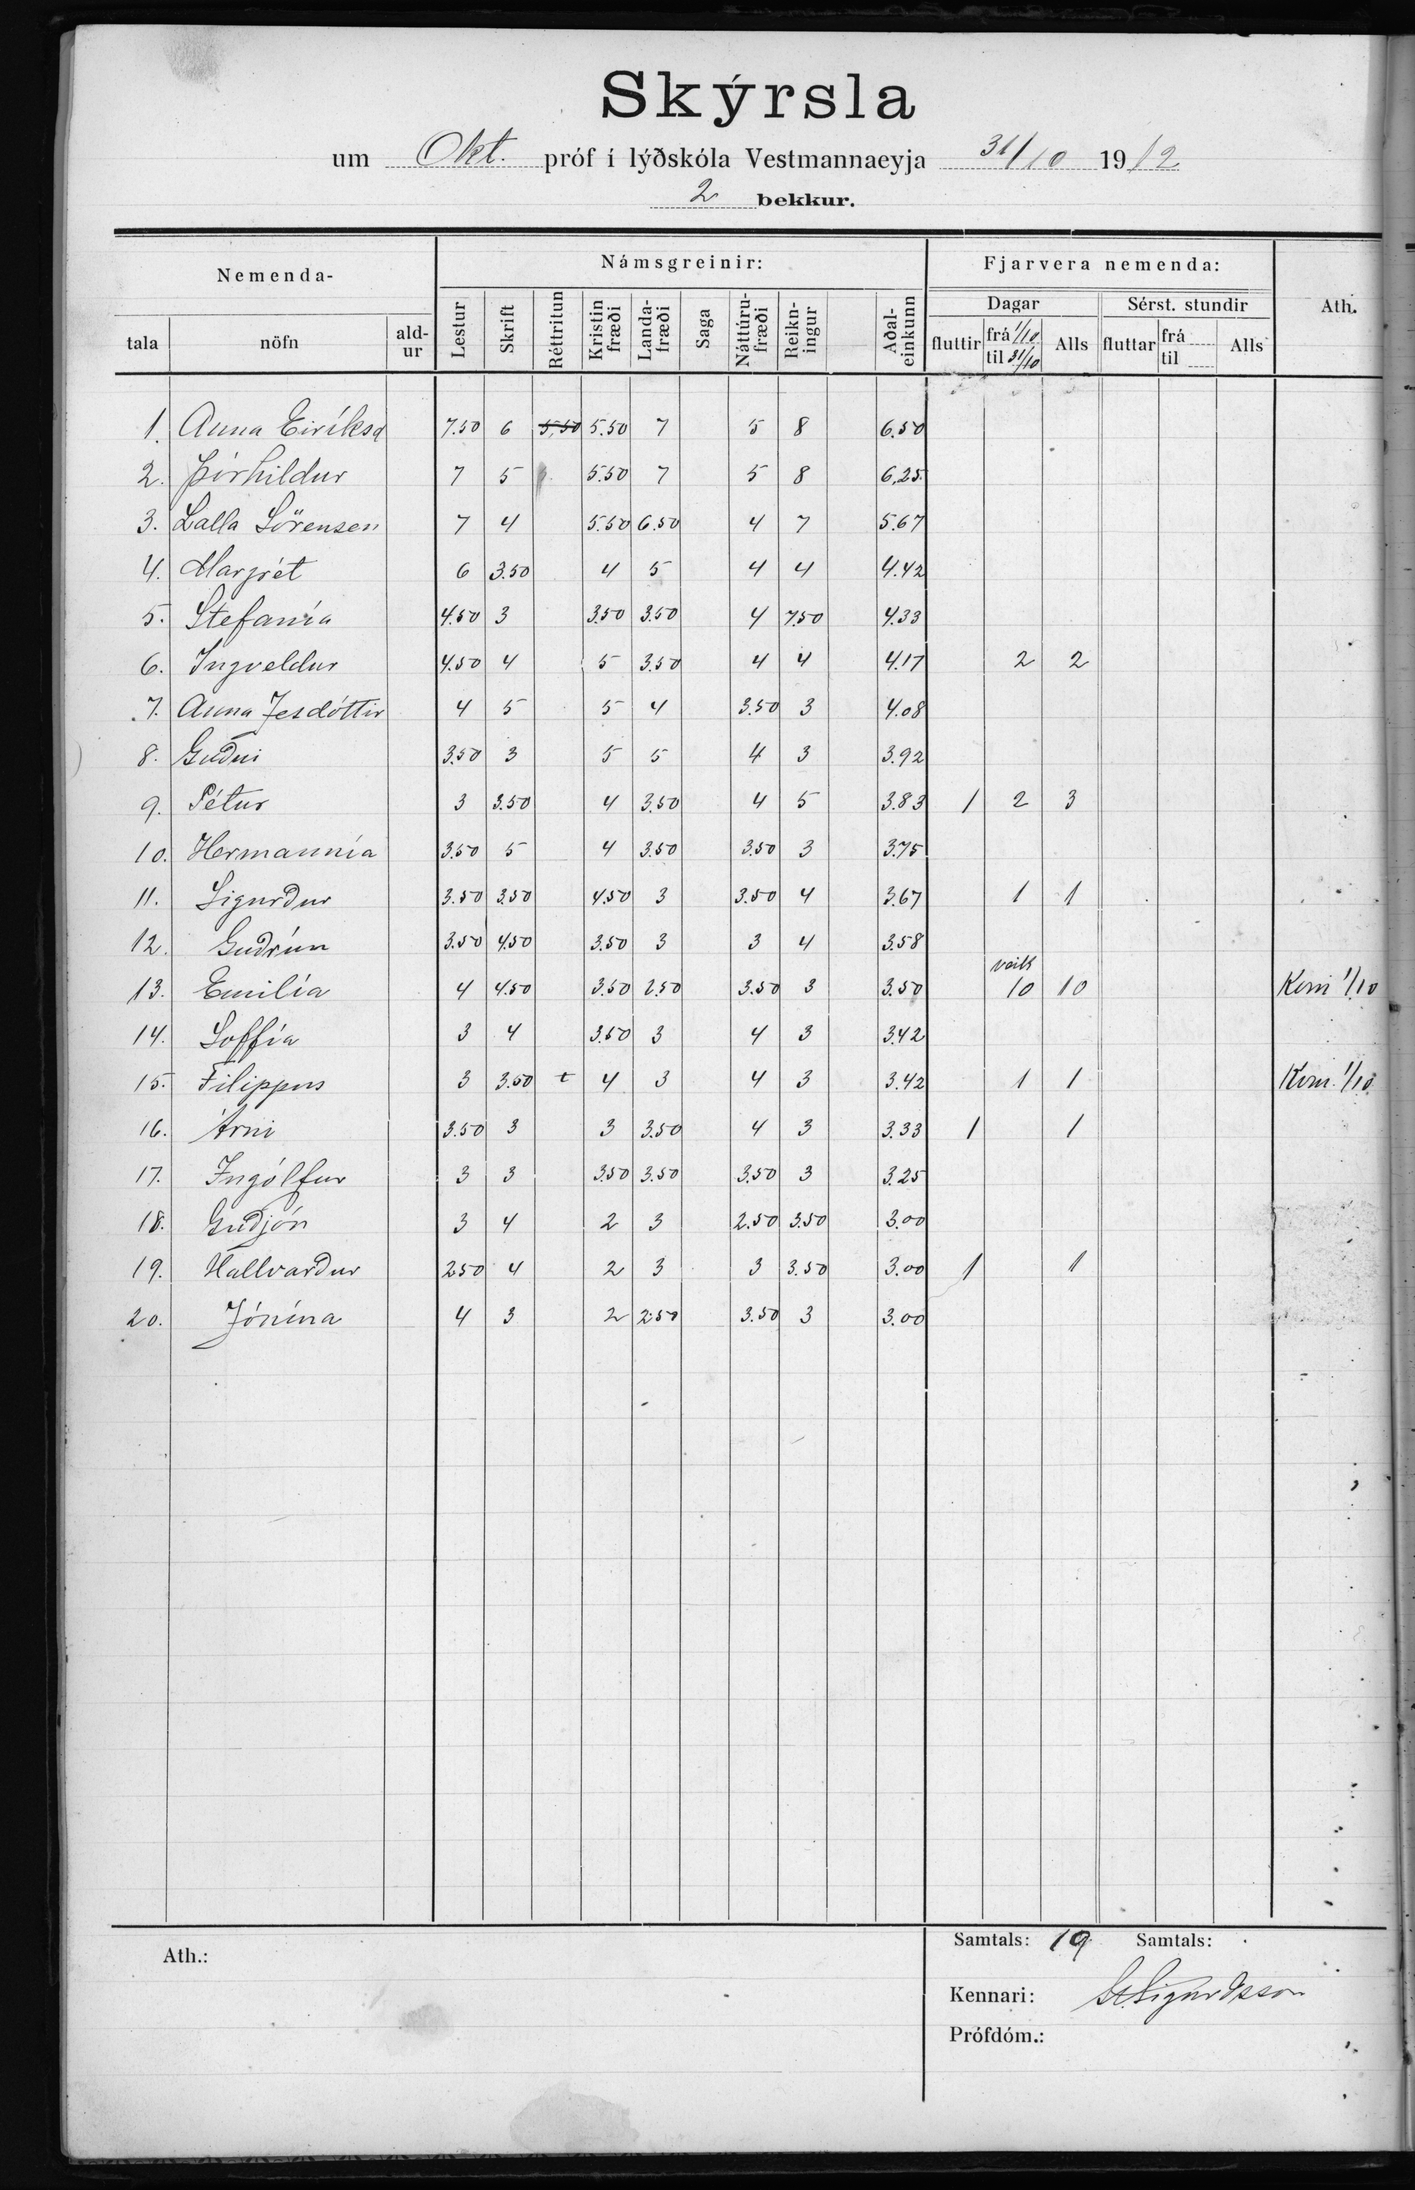 Skýrsla
um Okt. próf í lýðskóla Vestmannaeyja 31/10 1912
2 bekkur.
Nemenda- Námsgreinir: Fjarvera nemenda: Ath.
Dagar Sérst. stundir
tala nöfn ald-ur Lestur Skrift Réttritun Kristin fræði Landa-fræði Saga Náttúru-fræði Reikn-ingur Aðal-einkunn fluttir frá 1/10 til 31/10 Alls fluttar frá til Alls
1. Anna Eiríksd 7.50 6 5,50 5.50 7 5 8 6.50
2. Þórhildur 7 5 5.50 7 5 8 6,25.
3. Lalla Sörensen 7 4 5.50 6.50 4 7 5.67
4. Margrét 6 3.50 4 5 4 4 4.42
5. Stefanía 4.50 3 3.50 3.50 4 7.50 4.33
6. Ingveldur 4.50 4 5 3.50 4 4 4.17 2 2
7. Anna Jesdóttir 4 5 5 4 3.50 3 4.08
8. Guðni 3.50 3 5 5 4 3 3.92
9. Pétur 3 3.50 4 3.50 4 5 3.83 1 2 3
10. Hermannía 3.50 5 4 3.50 3.50 3 3.75
11. Sigurður 3.50 3.50 4.50 3 3.50 4 3.67 1 1
12. Guðrún 3.50 4.50 3.50 3 3 4 3.58
veik
13. Emilía 4 4.50 3.50 2.50 3.50 3 3.50 10 10 Kom 1/10
14. Soffía 3 4 3.50 3 4 3 3.42
15. Filippus 3 3.50 t 4 3 4 3 3.42 1 1 Kom. 1/10
16. Árni 3.50 3 3 3.50 4 3 3.33 1 1
17. Ingólfur 3 3 3.50 3.50 3.50 3 3.25
18. Guðjón 3 4 2 3 2.50 3.50 3.00
19. Hallvarður 2.50 4 2 3 3 3.50 3.00 1 1
20. Jónína 4 3 2 2.50 3.50 3 3.00
Ath.: Samtals: 19 Samtals:
Kennari: St. Sigurðsson
Prófdóm.: